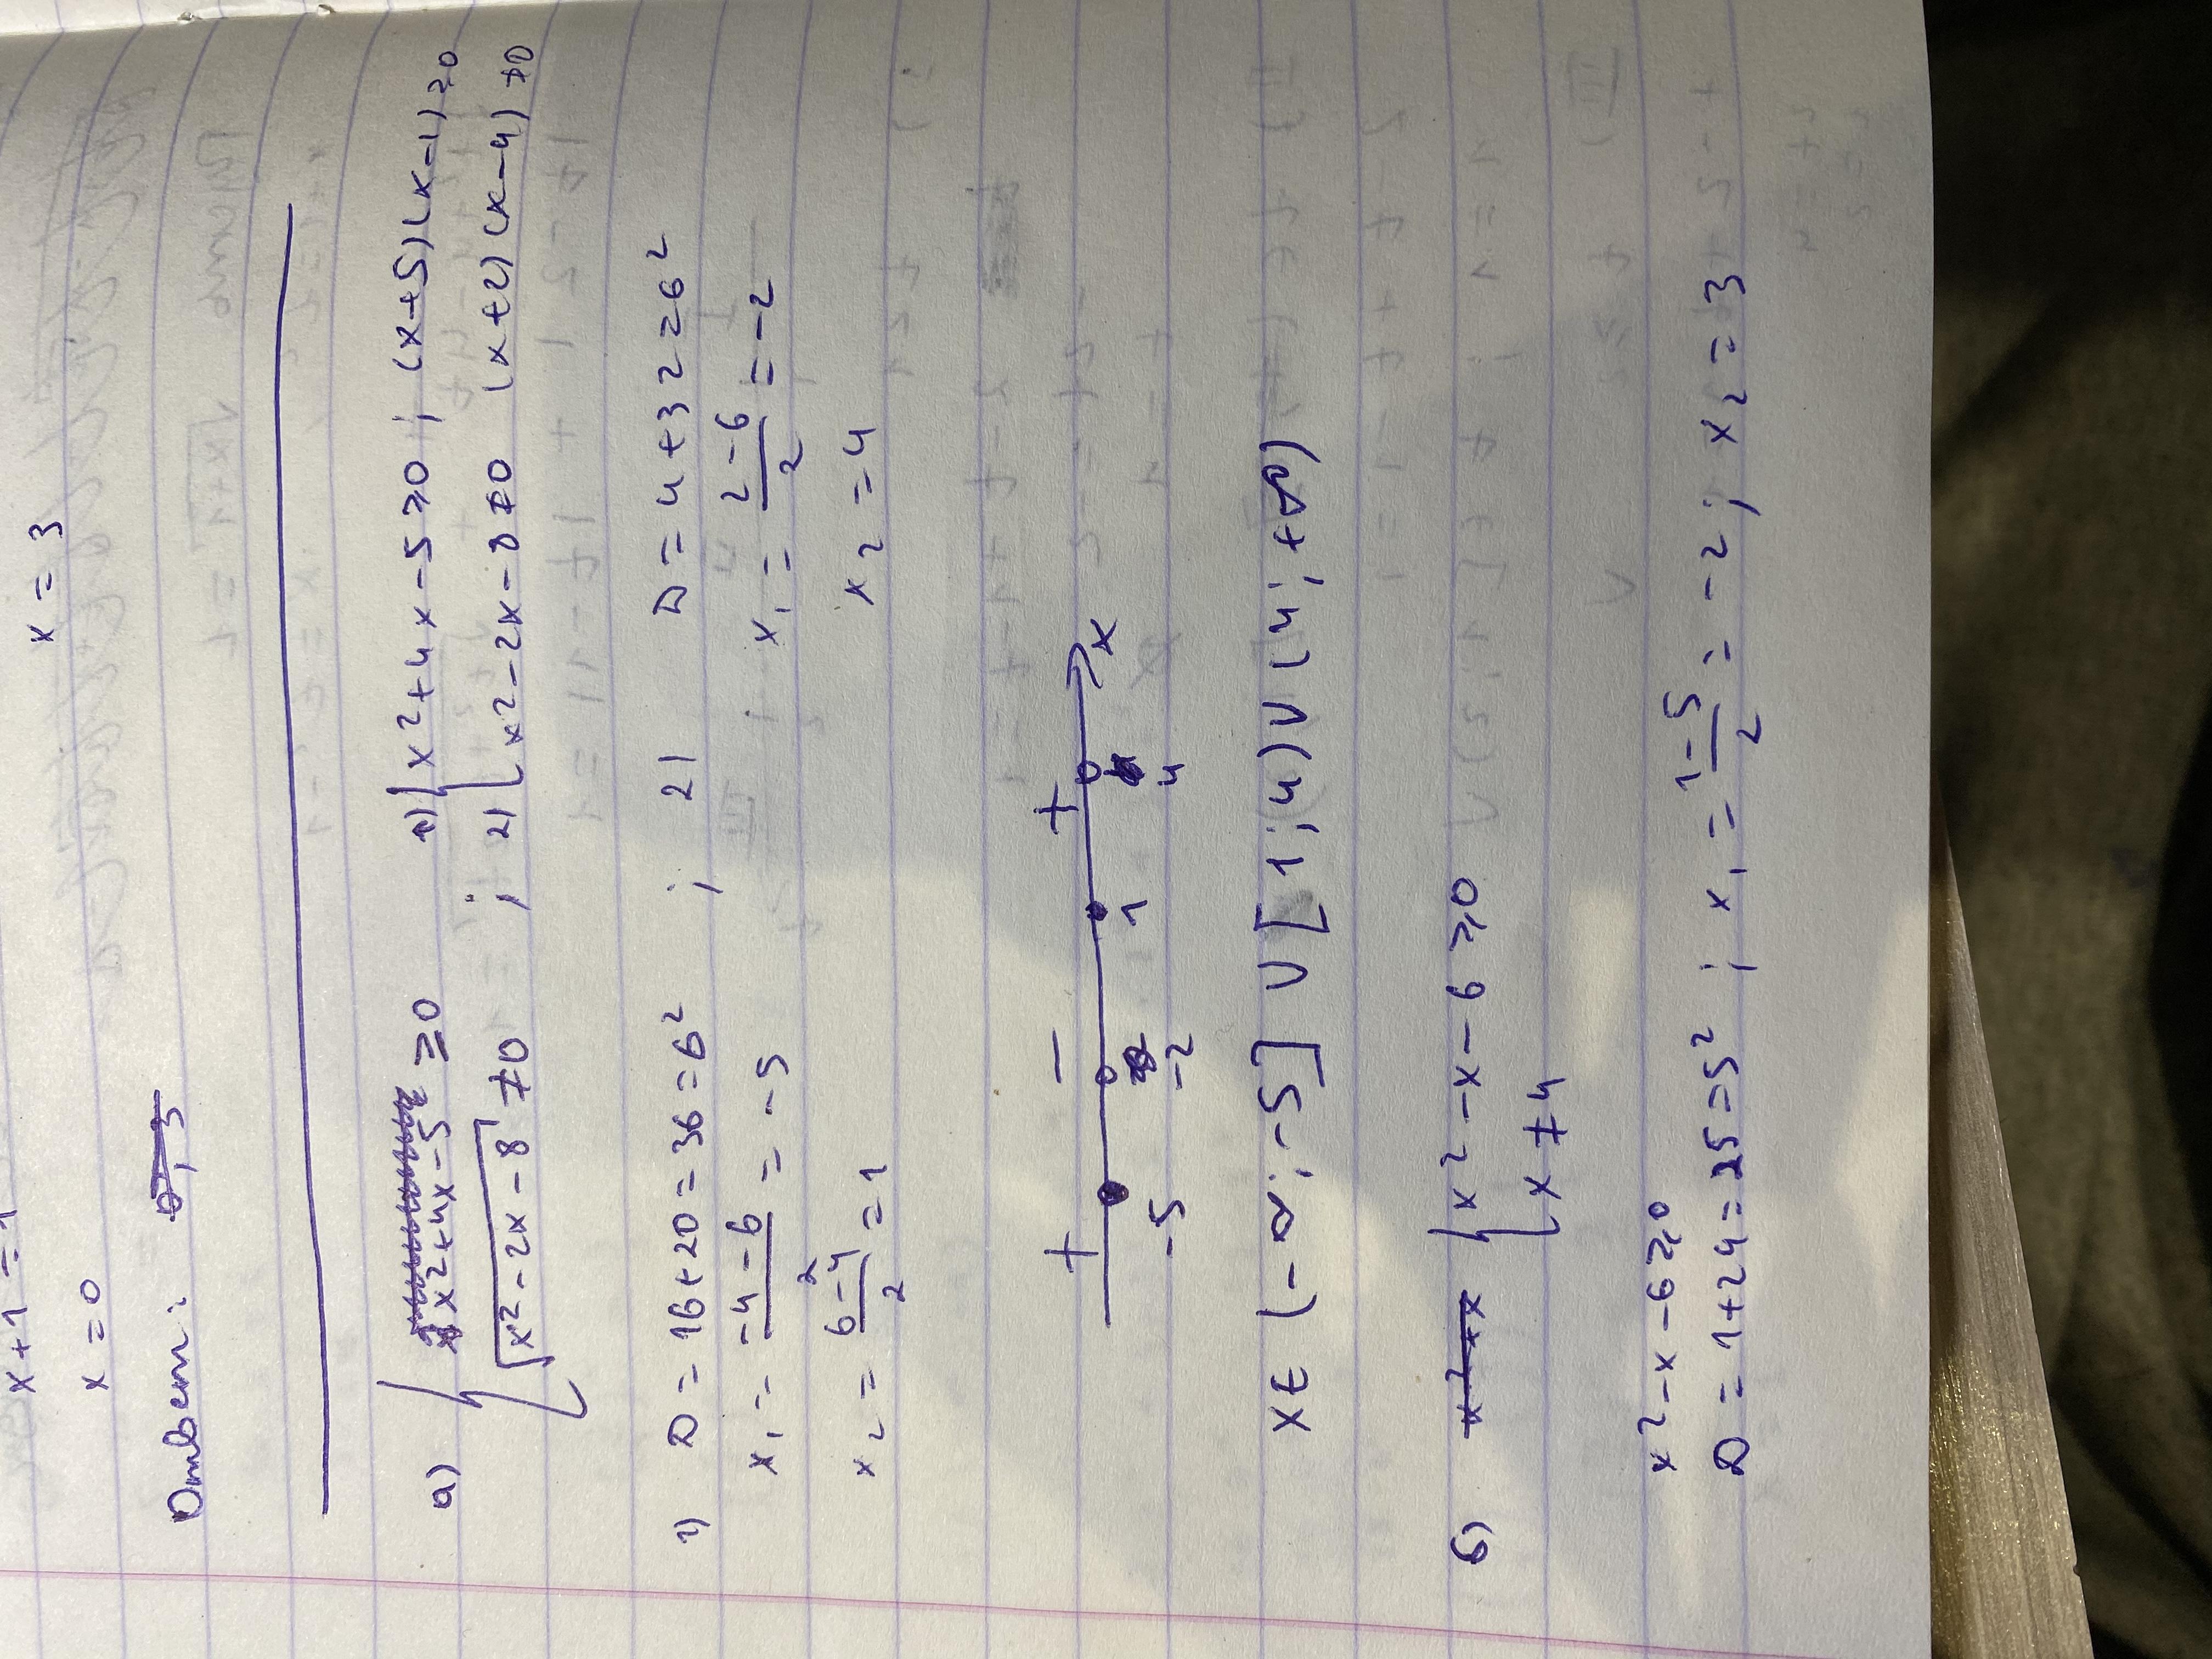 x+1=1
x=0 x=3
Ответ:
a) { x²+4x-5 ≥0 1) { x²+4x-5≥0 ; (x+5)(x-1)≥0
√x²-2x-8 ≠0 ; 2) x²-2x-8≠0 (x+2)(x-4)≠0
1) D=16+20=36=6² ; 2) D=4+32=6²
x₁=(-4-6)/2=-5 x₁=(2-6)/2=-2
x₂=(6-4)/2=1 x₂=4
+ - +
-5 -2 1 4 x
x∈(-∞;-5]∪[1;4)∪(4;+∞)
б) { x²-x-6≥0
x≠4
x²-x-6≥0
D=1+24=25=5² ; x₁=(1-5)/2=-2; x₂=3